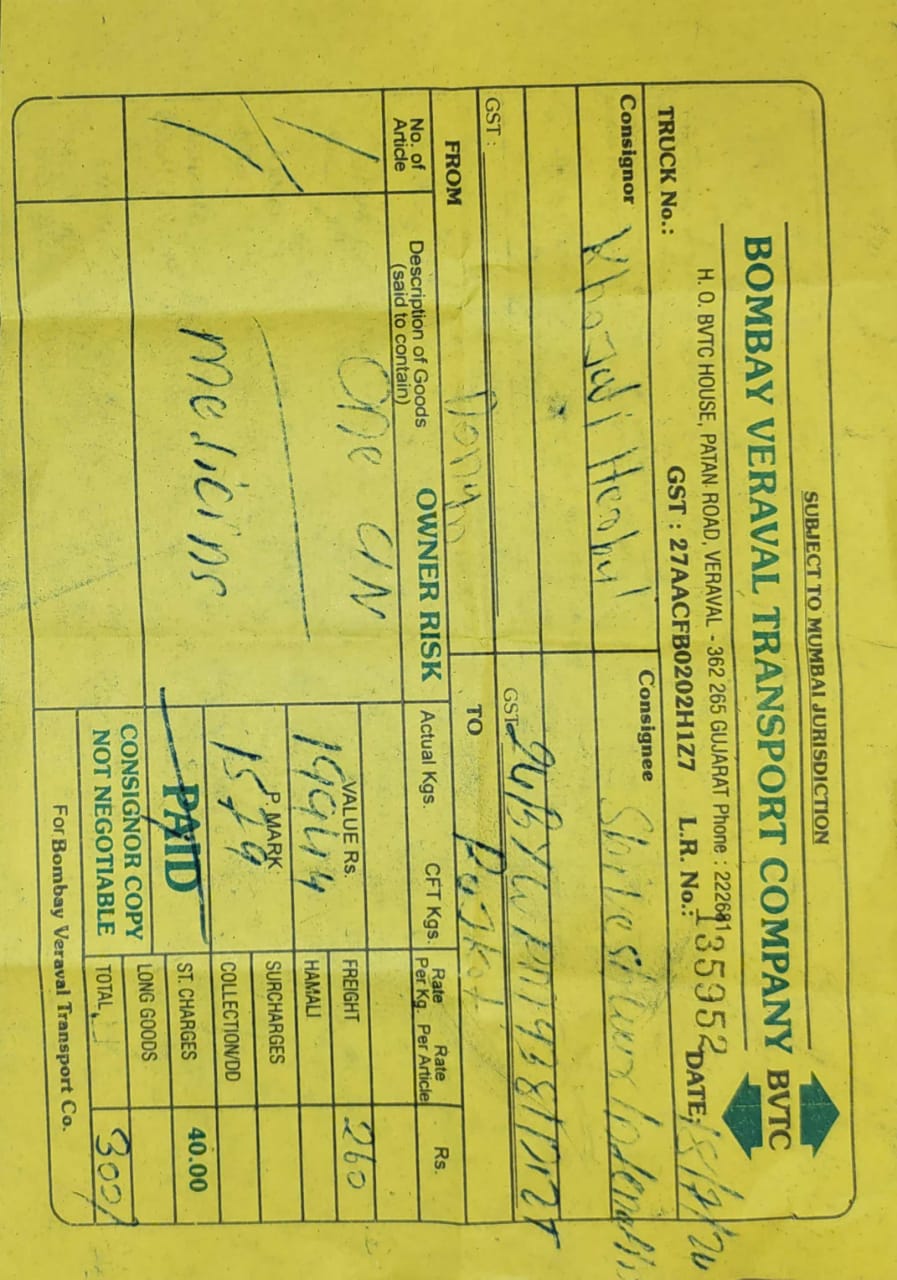 SUBJECT TO MUMBAI JURISDICTION
BOMBAY VERAVAL TRANSPORT COMPANY BVTC
H. O. BVTC HOUSE, PATAN ROAD, VERAVAL - 362 265 GUJARAT Phone : 222681
GST : 27AACFB0202H1Z7 L.R. No.: 135952
TRUCK No.: DATE:
Consignor
Consignee
GST :
GST
FROM
TO
OWNER RISK
No. of Article
Description of Goods (said to contain)
Actual Kgs. CFT Kgs.
Rate Per Kg. Rate Per Article Rs.
one
medicins
VALUE Rs.
P. MARK
1579
PAID
CONSIGNOR COPY
NOT NEGOTIABLE
FREIGHT 260
HAMALI
SURCHARGES
COLLECTION/DD
ST. CHARGES 40.00
LONG GOODS
TOTAL 300/
For Bombay Veraval Transport Co.